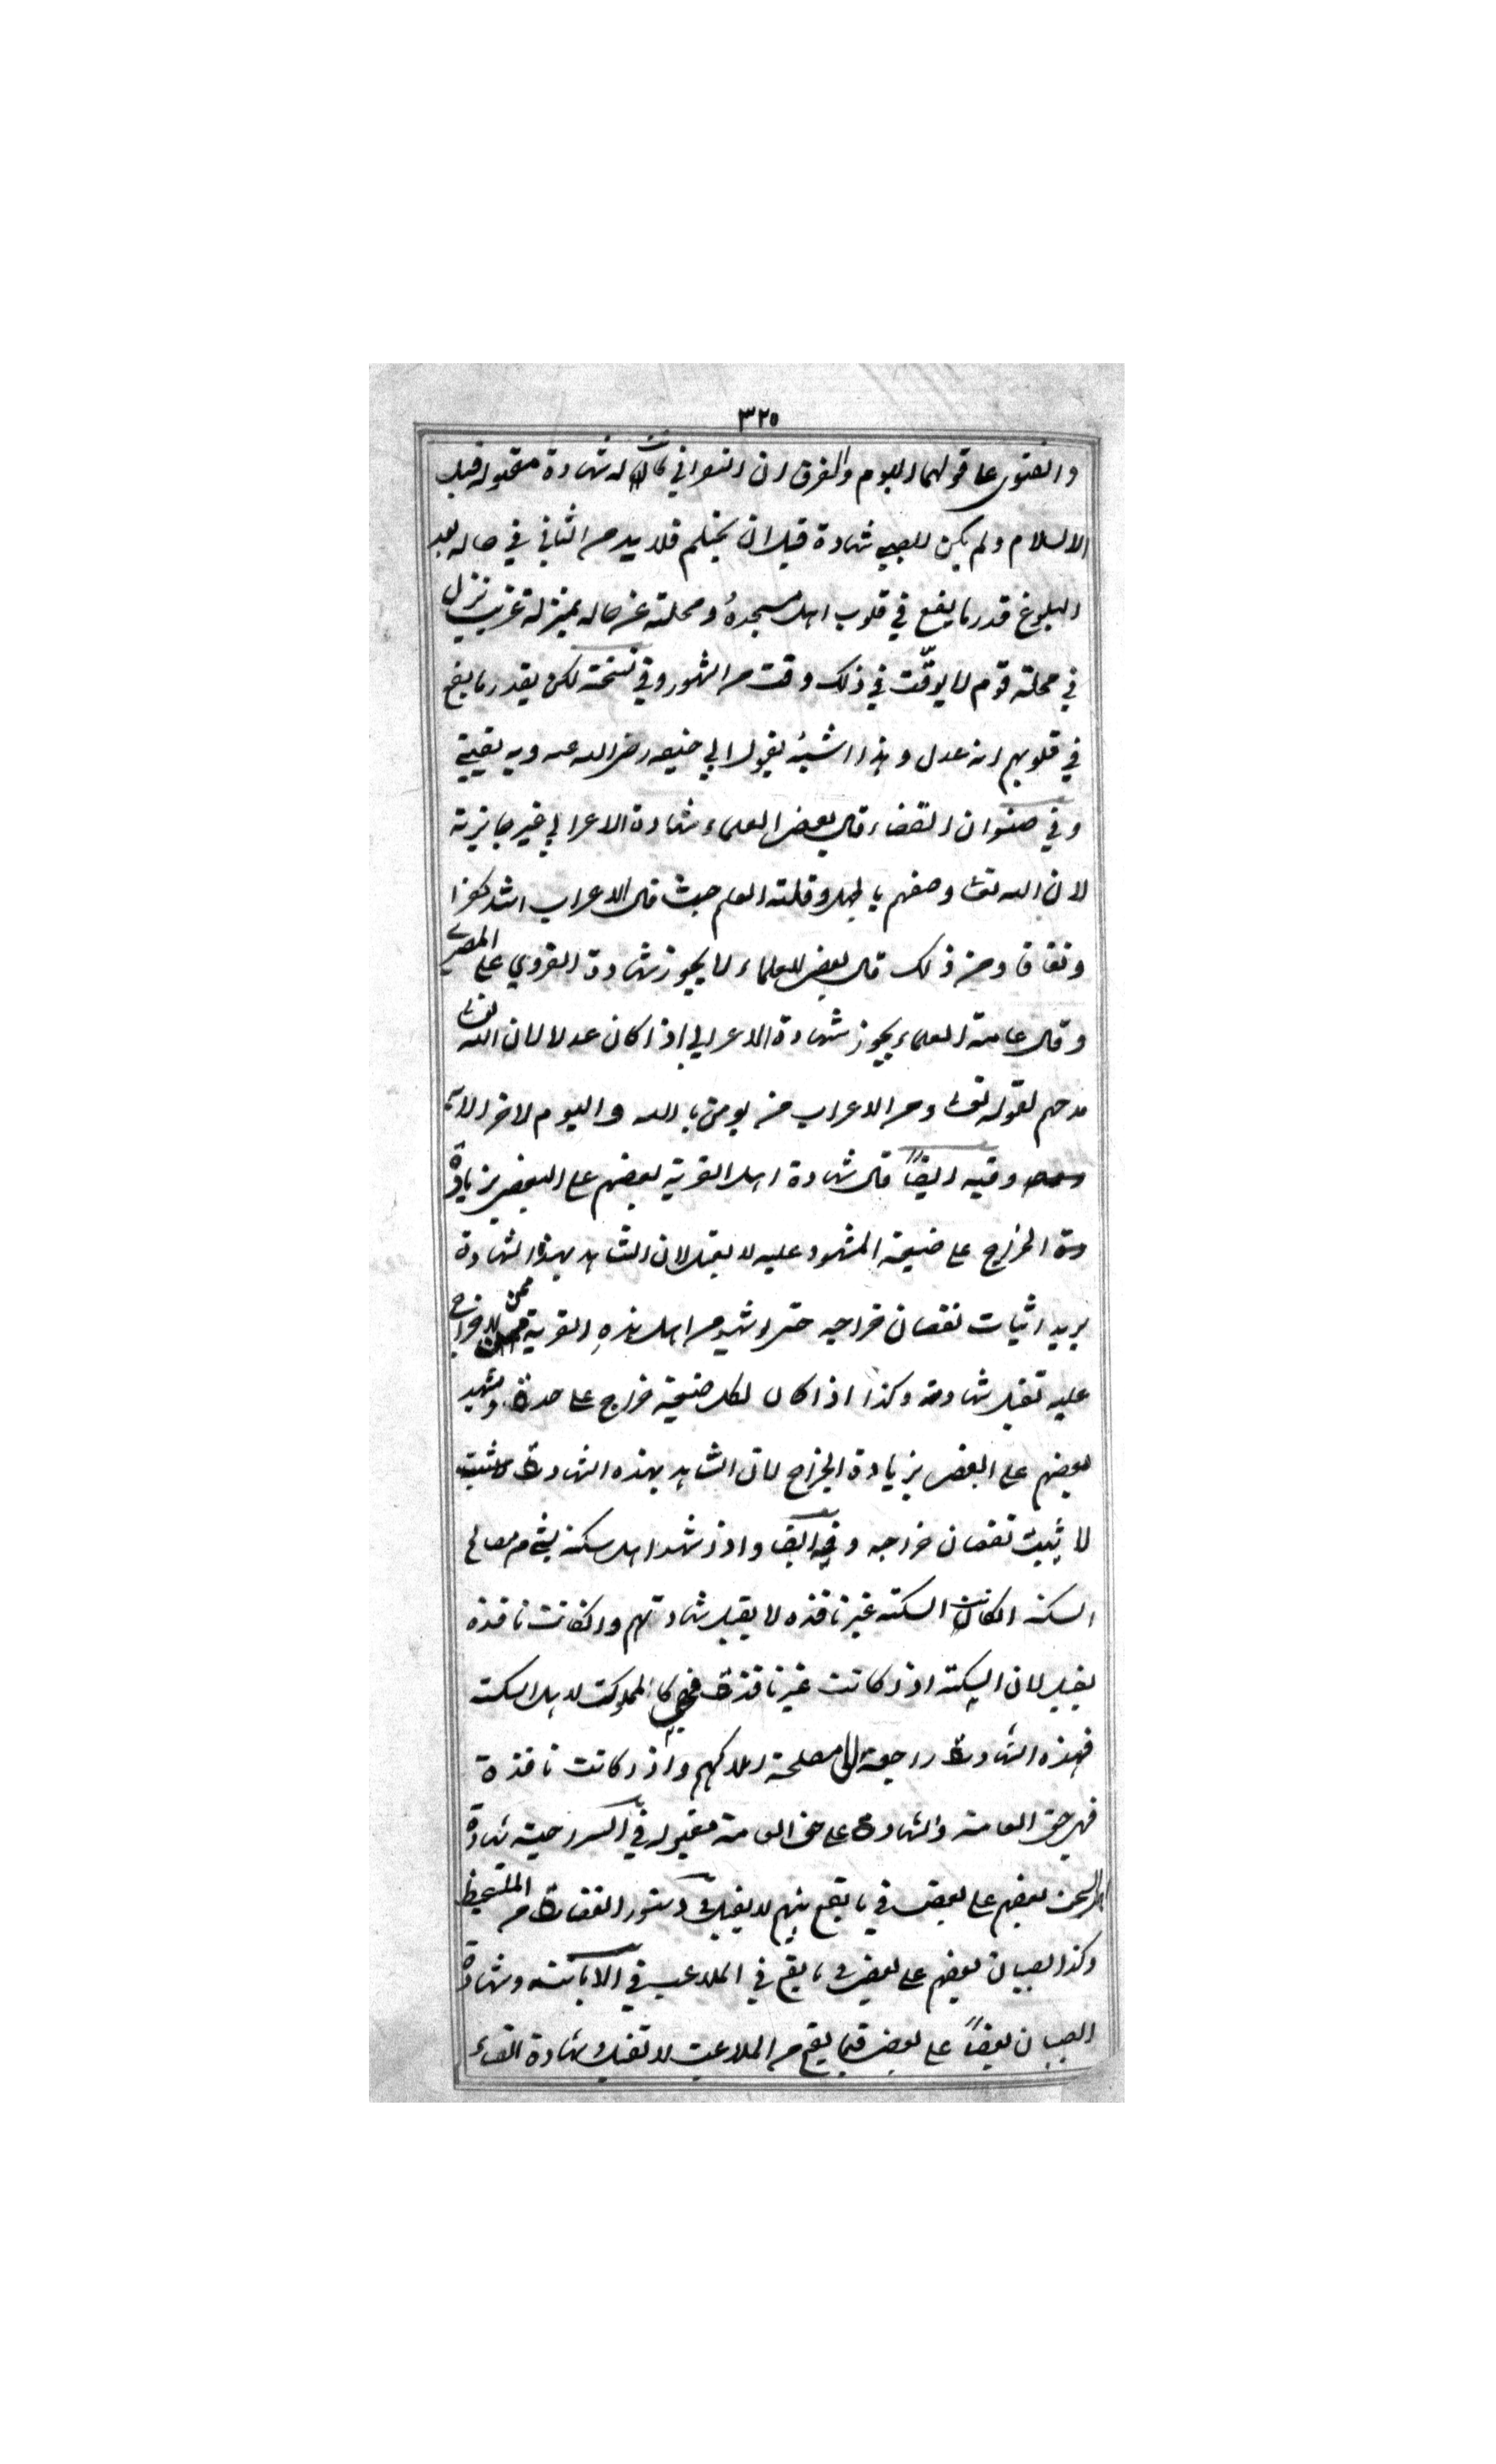 ٣٢٥
والفتوى على قولهما اليوم والفرق ان النصراني كانت له شهادة مقبولة قبل
الاسلام ولم يكن للصبي شهادة قبل ان يحتلم فلا بد من التاني في حاله بعد
البلوغ قدر ما يقع في قلوب اهل مسجده ومحلته عن حاله بمنزلة غريب نزل
في محلة قوم لا يوقّت في ذلك وقت من الشهور وفي نسخة لكن يقدر ما يقع
في قلوبهم انه عدل وهذا اشبه بقول ابي حنيفه رضي الله عنه وبه
وفي صنوان القضاء قال بعض العلماء شهادة الاعرابي غير جايزة
لان الله تعالى وصفهم بالجهل وقلة العلم حيث قال الاعراب اشد كفرا
ونفاقا ومن ذلك قال بعض العلماء لا يجوز شهادة القروي على المصري
وقال عامة العلماء يجوز شهادة الاعرابي اذا كان عدلا لان الله تعالى
مدحهم لقوله تعالى ومن الاعراب من يومن بالله واليوم الاخر الاية
وفيه ايضًا قال شهادة اهل القرية بعضهم على البعض بزيادة
الخراج على ضيعة المشهود عليه لا يقبل لان الشاهد بهذه الشهادة
يريد اثبات نقصان خراجه حتى لو شهد من اهل هذه القرية ممن لا خراج
عليه تقبل شهادته وكذا اذا كان لكل ضيعة خراج على حدة وشهد
بعضهم على البعض بزيادة الخراج لان الشاهد بهذه الشهادة
لا يثبت نقصان خراجه وفيه ايضا واذا شهد اهل سكة بشي من مصالح
السكة ان كانت السكة غير نافذه لا يقبل شهادتهم وان كانت نافذه
يقبل لان السكة اذا كانت غير نافذة فهي كالمملوكة لاهل السكة
فهذه الشهادة راجعة الى مصلحة املاكهم واذا كانت نافذة
فهي حق العامة والشهادة على حق العامة مقبولة في السراجية شهادة
اهل السجن بعضهم على بعض في ما يقع بينهم لا يقبل في دستور القضاة من الملتقط
وكذا الصبيان بعضهم على بعض في ما يقع في الملاعب في وشهادة
الصبيان بعضًا على بعض فيما يقع من الملاعب لا تقبل وشهادة